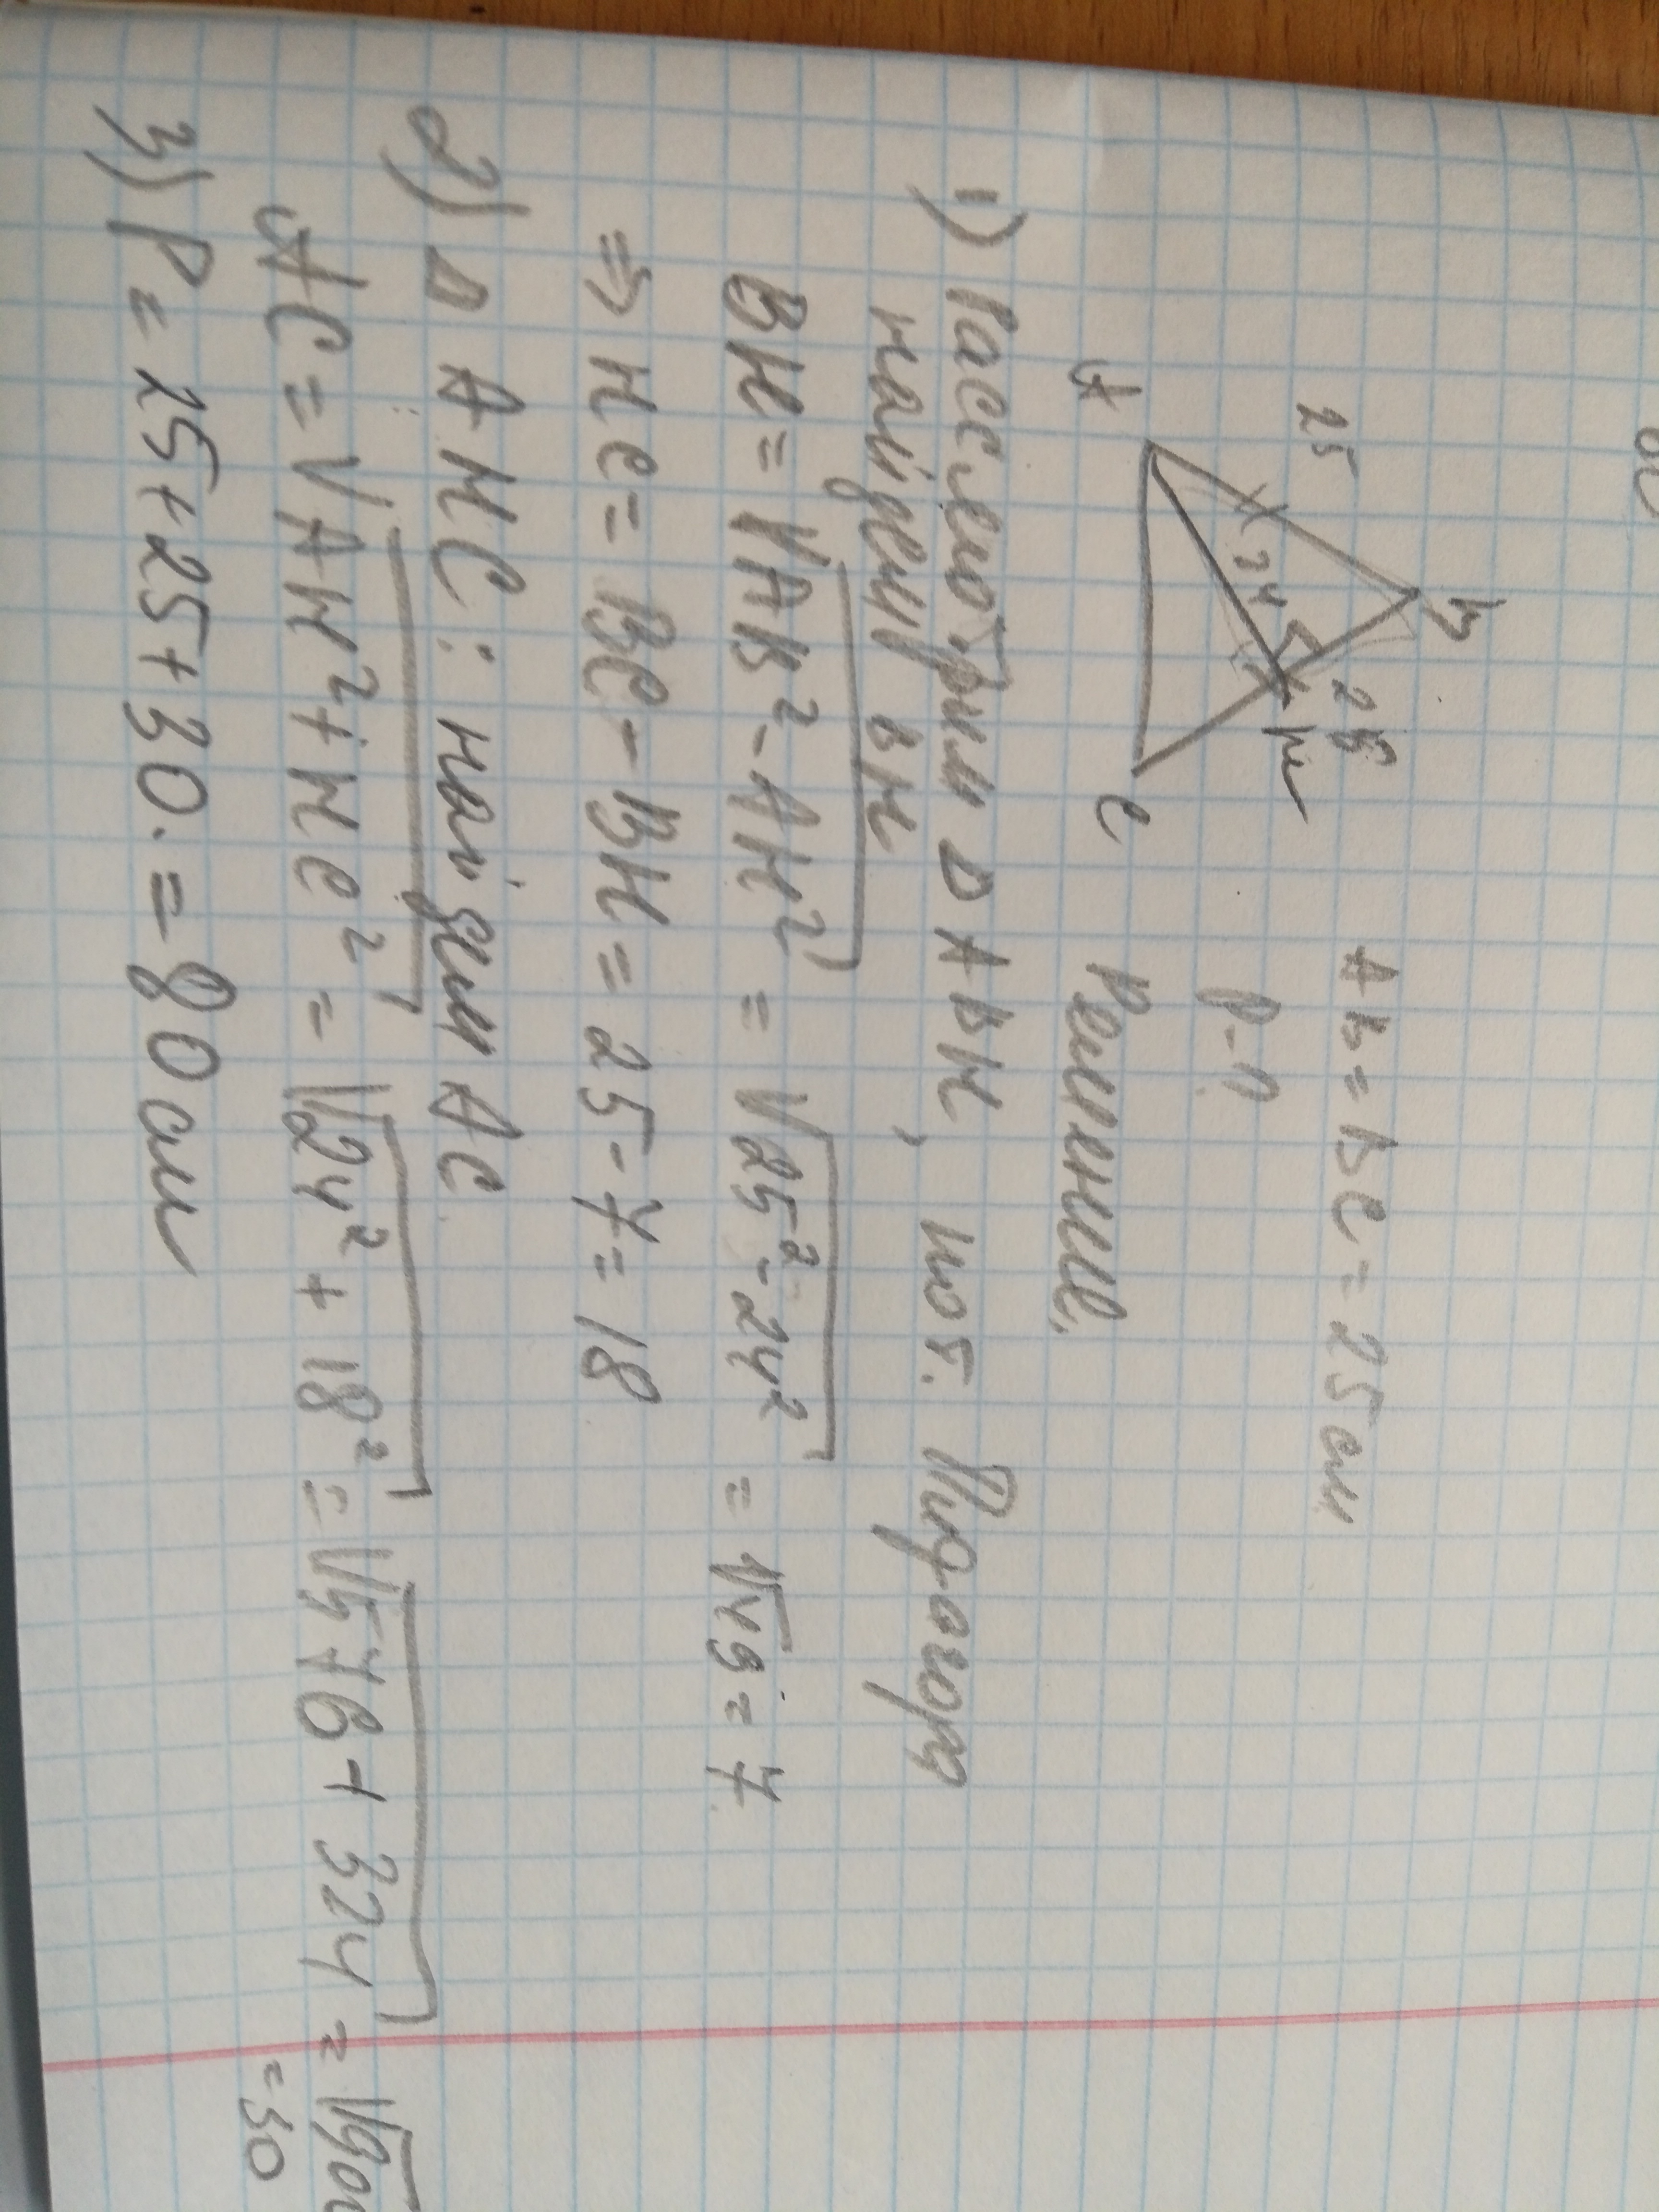 B
25
25
24
H
A
C
AB = BC = 25 см
Р - ?
Решение.
1) Рассмотрим △ ABH, по т. Пифагора
найдем BH
BH = √AB² - AH² = √25² - 24² = √49 = 7
⇒ HC = BC - BH = 25 - 7 = 18
2) △ AHC : найдем AC
AC = √AH² + HC² = √24² + 18² = √576 + 324 = √900
= 30
3) P = 25 + 25 + 30. = 80 см